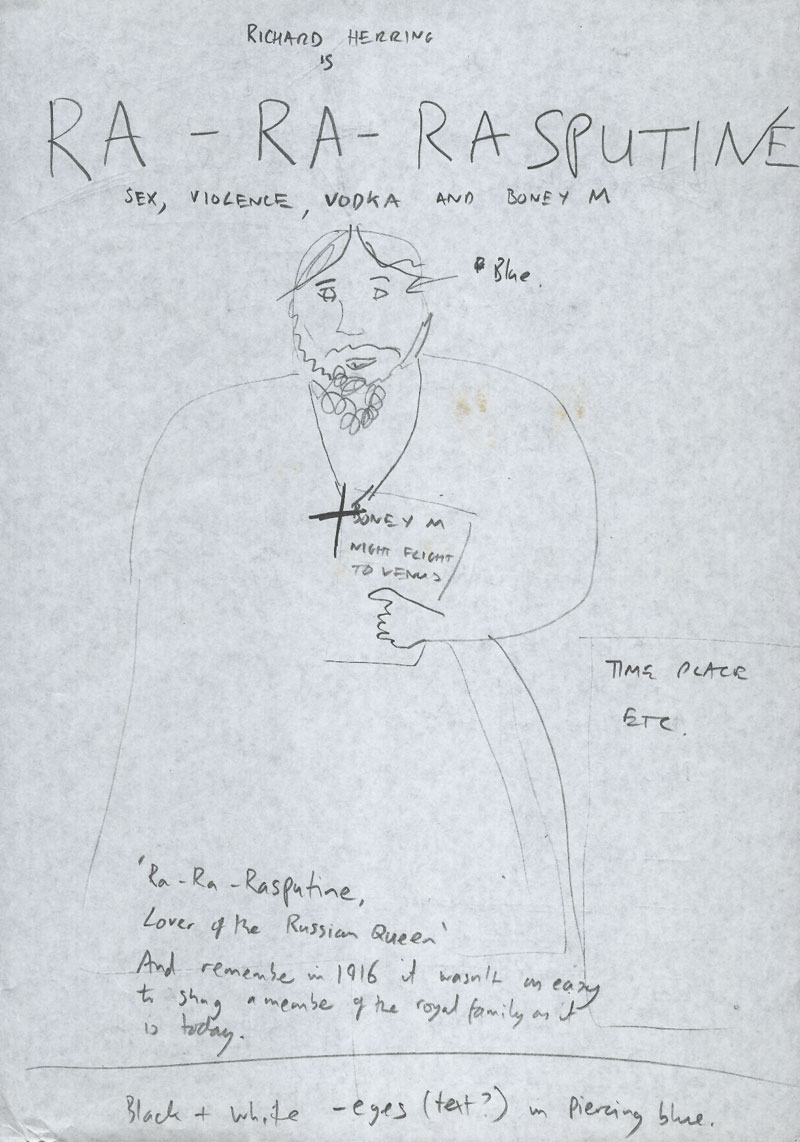 RICHARD HERRING
IS
RA-RA-RASPUTINE
SEX, VIOLENCE, VODKA AND BONEY M
Blue.
BONEY M
NIGHT FLIGHT
TO VENUS
TIME PLACE
ETC.
'Ra-Ra-Rasputine,
Lover of the Russian Queen'
And remember in 1916 it wasn't as easy
to shag a member of the royal family as it
is today.
Black + white - eyes (text?) in piercing blue.